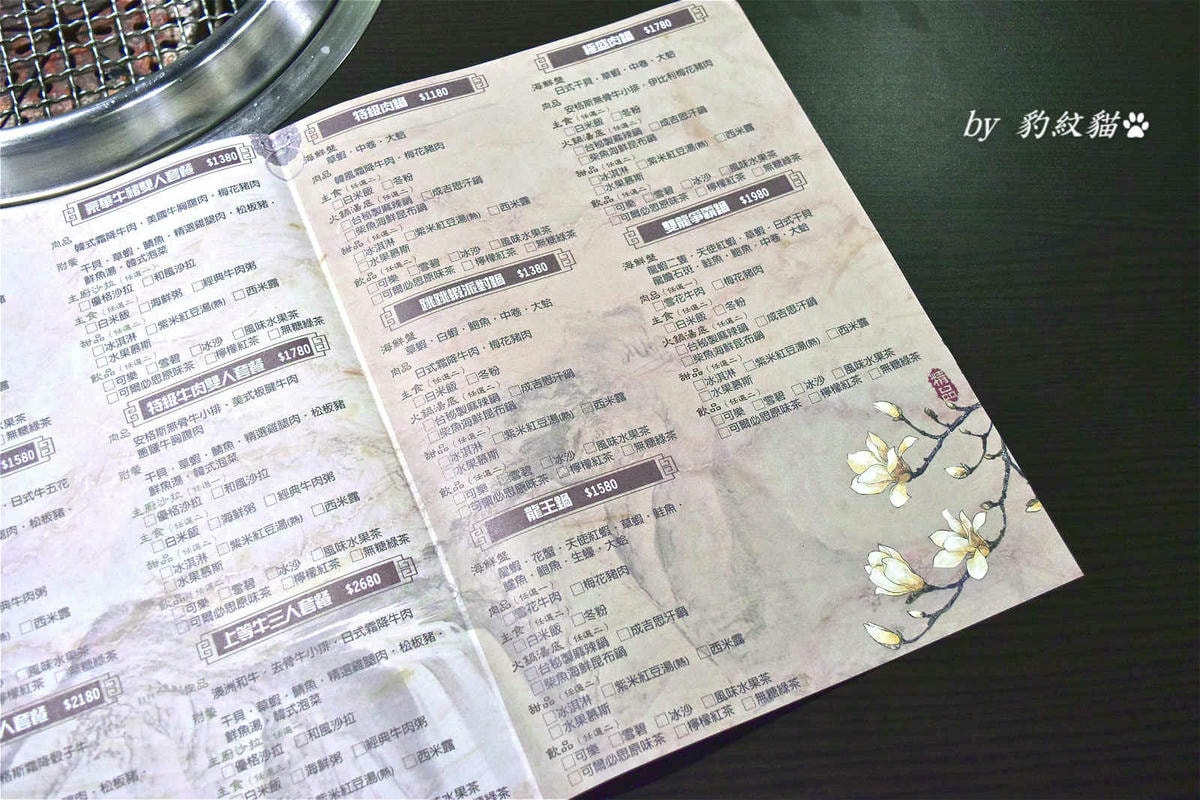 by 豹紋貓
豪華牛豬雙人套餐 $1380
肉品 韓式霜降牛肉‧美國牛胸腹肉‧梅花豬肉
附餐 干貝‧草蝦‧鯖魚‧精選雞腿肉‧松板豬‧
鮮魚湯‧韓式泡菜
主廚沙拉(任選一)
□優格沙拉 □和風沙拉
主食(任選二)
□白米飯 □海鮮粥 □經典牛肉粥
甜品(任選二)
□冰淇淋 □紫米紅豆湯(熱) □西米露
□水果慕斯
飲品(任選二)
□可樂 □雪碧 □冰沙 □風味水果茶
□可爾必思原味茶 □檸檬紅茶 □無糖綠茶
特級牛肉雙人套餐 $1780
肉品 安格斯無骨牛小排‧美式板腱牛肉
附餐 干貝‧草蝦‧鯖魚‧精選雞腿肉‧松板豬
鮮魚湯‧韓式泡菜
主廚沙拉(任選一)
□優格沙拉 □和風沙拉
主食(任選二)
□白米飯 □海鮮粥 □經典牛肉粥
甜品(任選二)
□冰淇淋 □紫米紅豆湯(熱) □西米露
□水果慕斯
飲品(任選二)
□可樂 □雪碧 □冰沙 □風味水果茶
□可爾必思原味茶 □檸檬紅茶 □無糖綠茶
上等牛三人套餐 $2680
肉品 澳洲和牛‧去骨牛小排‧日式霜降牛肉
附餐 干貝‧草蝦‧鯖魚‧精選雞腿肉‧松板豬‧
鮮魚湯‧韓式泡菜
主廚沙拉(任選一)
□優格沙拉 □和風沙拉
主食(任選二)
□白米飯 □海鮮粥 □經典牛肉粥
□紫米紅豆湯(熱) □西米露
$1580
日式牛五花
松板豬‧
典牛肉粥
□西米露
□風味水果茶
□無糖綠茶
人套餐 $2180
格斯霜降骰子牛
松板豬‧
特級肉鍋 $1180
海鮮盤 草蝦‧中卷‧大蛤
肉品 韓風霜降牛肉‧梅花豬肉
主食(任選二)
□白米飯 □冬粉
火鍋湯底(任選二)
□台秘製麻辣鍋 □成吉思汗鍋
□柴魚海鮮昆布鍋
甜品(任選二)
□冰淇淋 □紫米紅豆湯(熱) □西米露
□水果慕斯
飲品(任選二)
□可樂 □雪碧 □冰沙 □風味水果茶
□可爾必思原味茶 □檸檬紅茶 □無糖綠茶
跳跳蝦派對鍋 $1380
海鮮盤 草蝦‧白蝦‧鮑魚‧中卷‧大蛤
肉品 日式霜降牛肉‧梅花豬肉
主食(任選二)
□白米飯 □冬粉
火鍋湯底(任選二)
□台秘製麻辣鍋 □成吉思汗鍋
□柴魚海鮮昆布鍋
甜品(任選二)
□冰淇淋 □紫米紅豆湯(熱) □西米露
□水果慕斯
飲品(任選二)
□可樂 □雪碧 □冰沙 □風味水果茶
□可爾必思原味茶 □檸檬紅茶 □無糖綠茶
龍王鍋 $1580
海鮮盤 龍蝦‧花蟹‧天使紅蝦‧草蝦‧鮭魚‧
鱸魚‧鮑魚‧生蠔‧大蛤
肉品(任選二)
□雪花牛肉 □梅花豬肉
主食(任選二)
□白米飯 □冬粉
火鍋湯底(任選二)
□台秘製麻辣鍋 □成吉思汗鍋
□柴魚海鮮昆布鍋
甜品(任選二)
□冰淇淋 □紫米紅豆湯(熱) □西米露
□水果慕斯
飲品(任選二)
□可樂 □雪碧 □冰沙 □風味水果茶
□可爾必思原味茶 □檸檬紅茶 □無糖綠茶
極盛肉鍋 $1780
海鮮盤 日式干貝‧草蝦‧中卷‧大蛤
肉品 安格斯無骨牛小排‧伊比利梅花豬肉
主食(任選二)
□白米飯 □冬粉
火鍋湯底(任選二)
□台秘製麻辣鍋 □成吉思汗鍋
□柴魚海鮮昆布鍋
甜品(任選二)
□冰淇淋 □紫米紅豆湯(熱) □西米露
□水果慕斯
飲品(任選二)
□可樂 □雪碧 □冰沙 □風味水果茶
□可爾必思原味茶 □檸檬紅茶 □無糖綠茶
雙龍爭霸鍋 $1980
海鮮盤 龍蝦二隻‧天使紅蝦‧草蝦‧日式干貝
龍膽石斑‧鮭魚‧鮑魚‧中卷‧大蛤
肉品(任選二)
□雪花牛肉 □梅花豬肉
主食(任選二)
□白米飯 □冬粉
火鍋湯底(任選二)
□台秘製麻辣鍋 □成吉思汗鍋
□柴魚海鮮昆布鍋
甜品(任選二)
□冰淇淋 □紫米紅豆湯(熱) □西米露
□水果慕斯
飲品(任選二)
□可樂 □雪碧 □冰沙 □風味水果茶
□可爾必思原味茶 □檸檬紅茶 □無糖綠茶